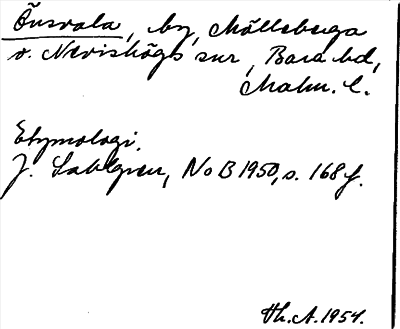 Önsvala, by, Mölleberga
o. Nevishögs snr, Bara hd,
Malm. l.
Etymologi.
J. Sahlgren, NoB 1950, s. 168 f.
Th. A. 1954.